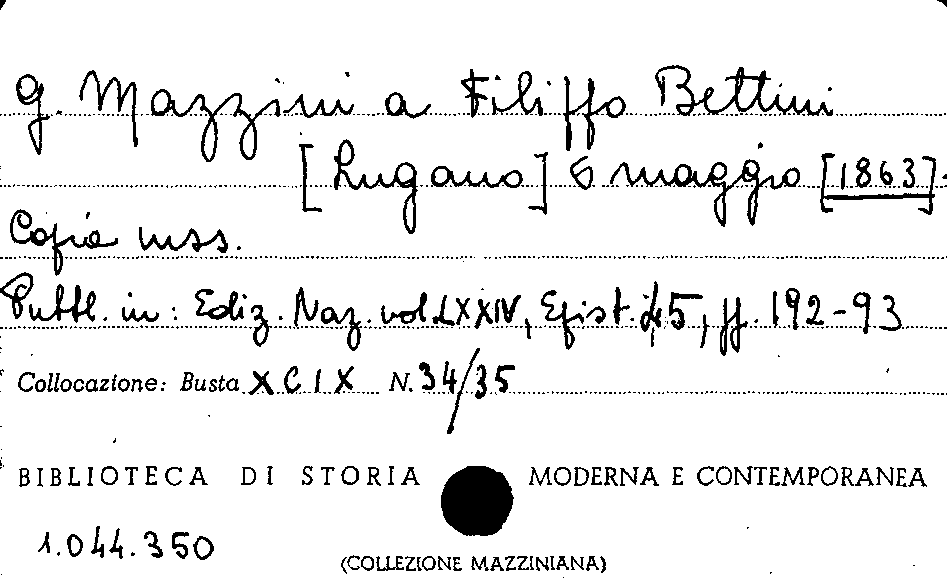 G. Mazzini a Filippo Bettini
[Lugano] 6 maggio [1863].
Copia mss.
Pubbl. in: Ediz. Naz. vol. LXXIV, Epist. 45, pp. 192-93
Collocazione: Busta XCIX N. 34/35
BIBLIOTECA DI STORIA MODERNA E CONTEMPORANEA
1.044.350
(COLLEZIONE MAZZINIANA)